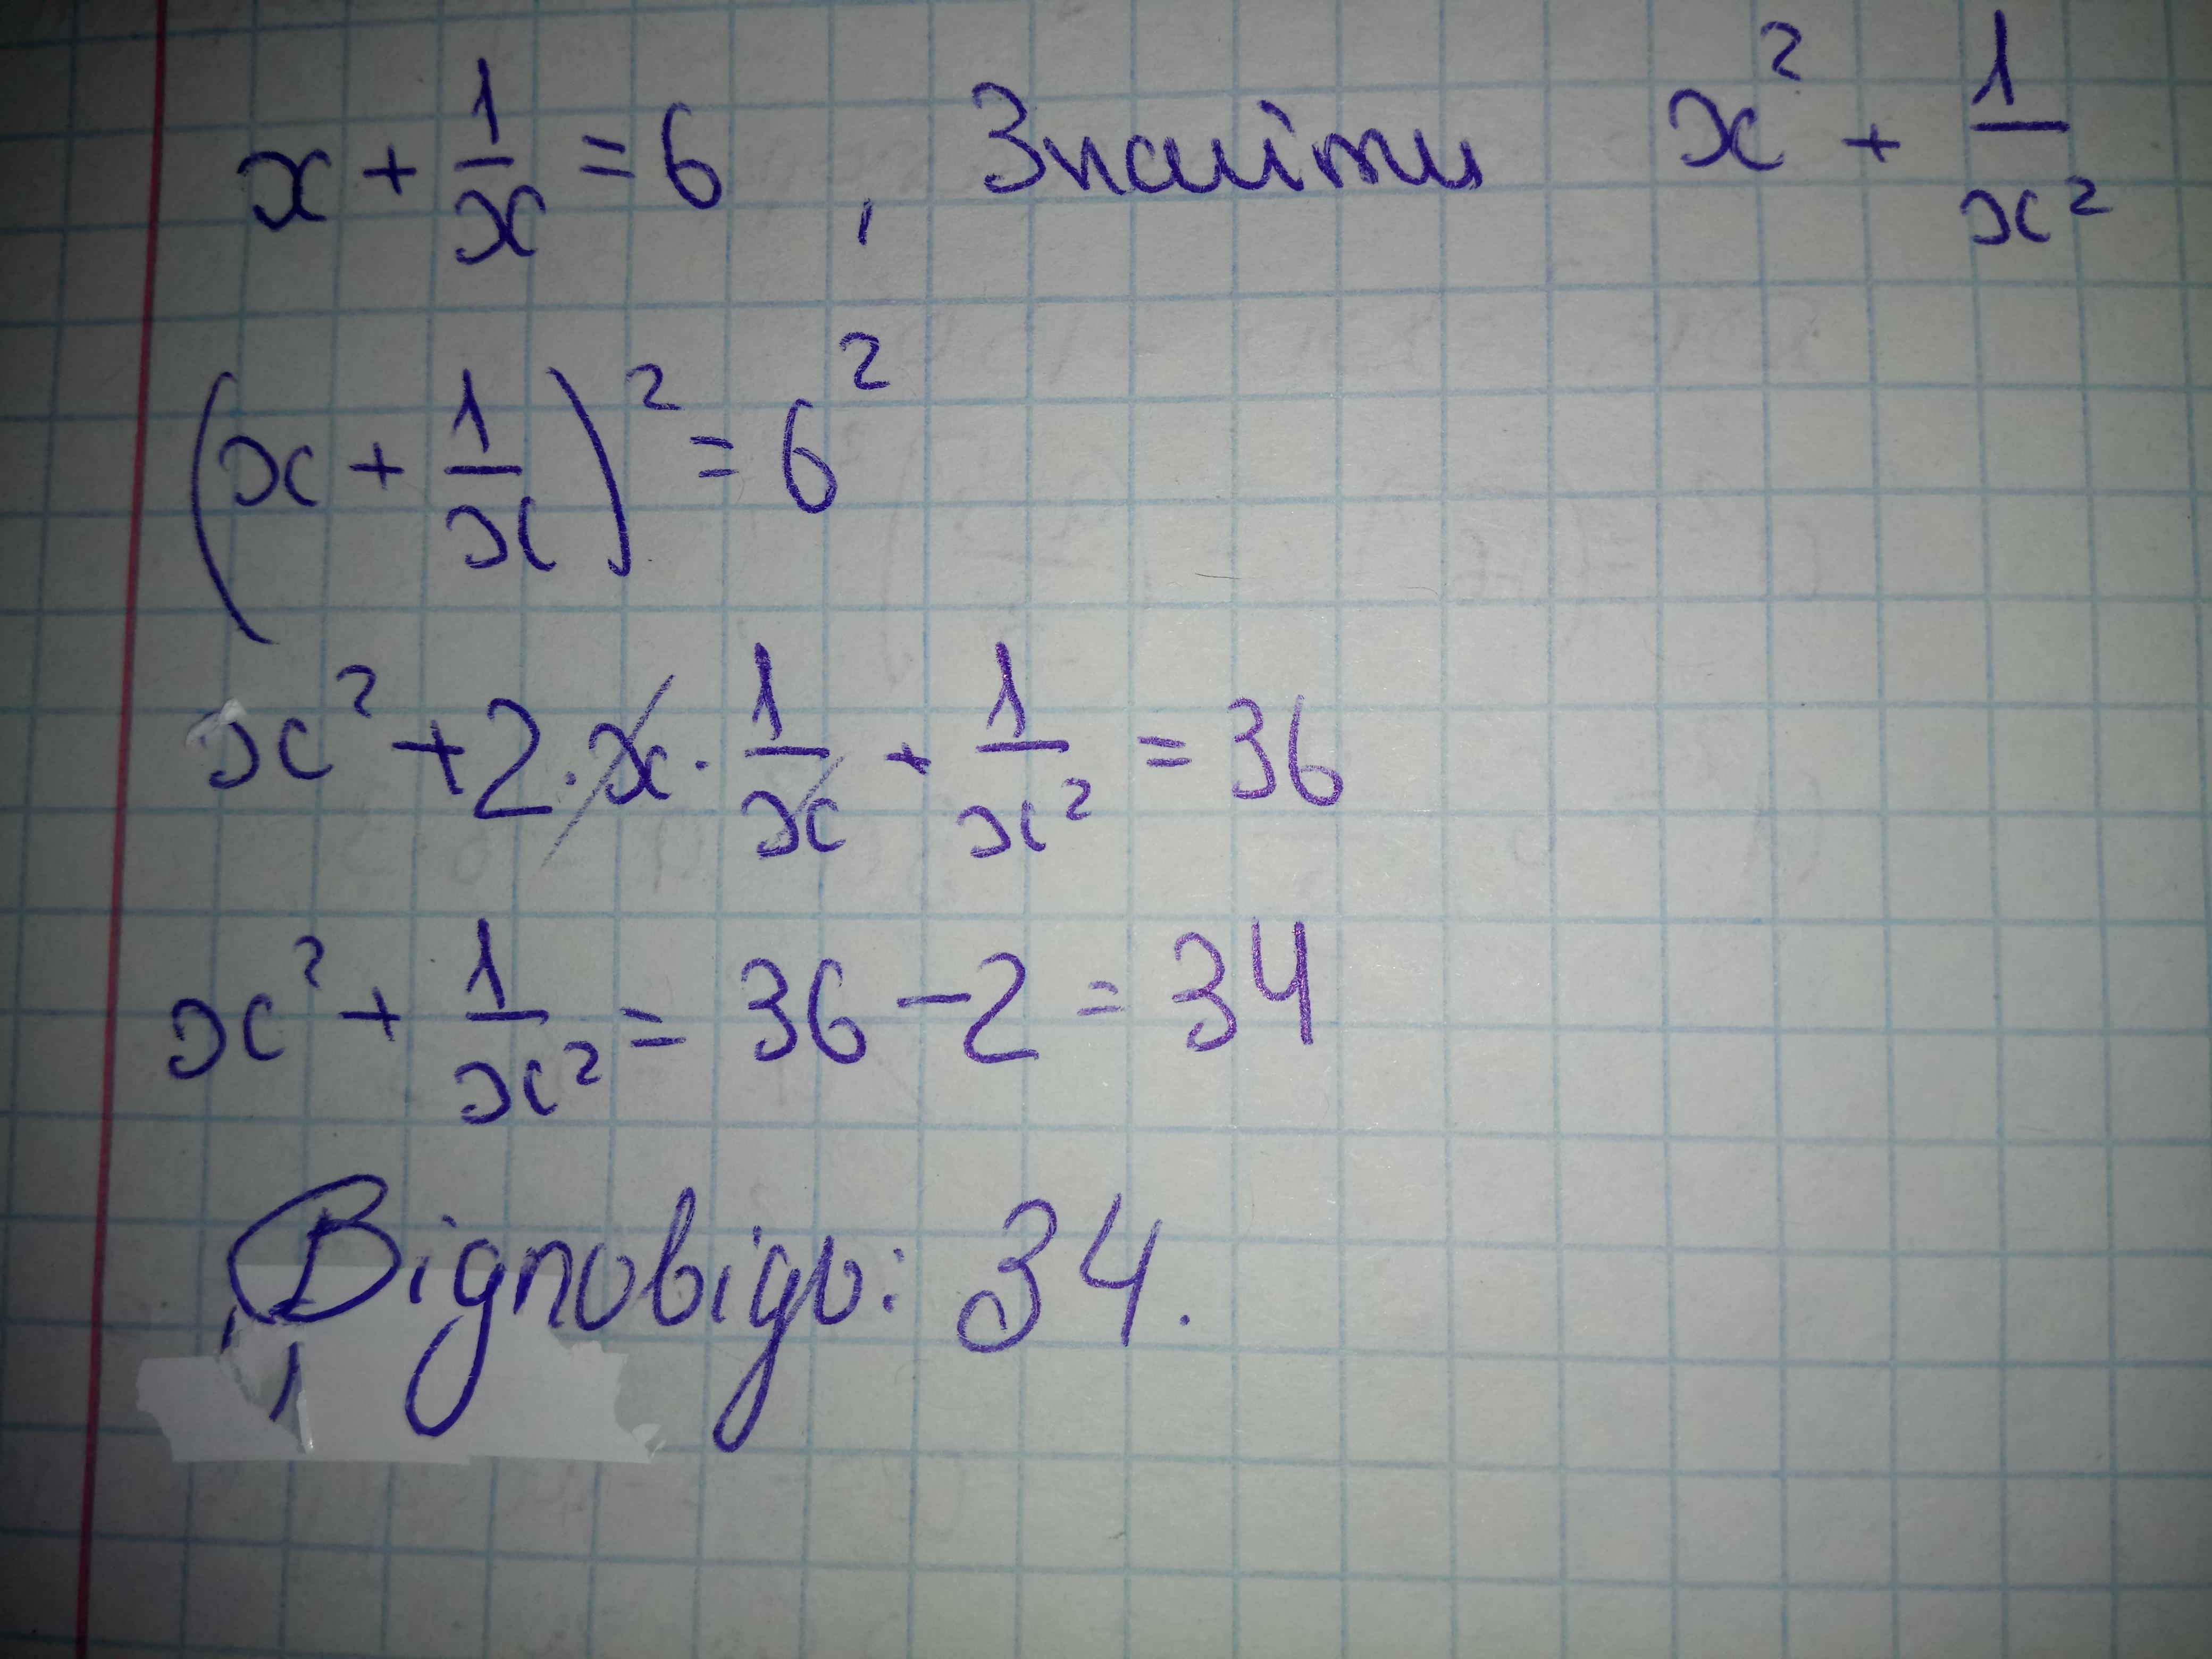 x + 1/x = 6 , Знайти x² + 1/x²
(x + 1/x)² = 6²
x² + 2 · x · 1/x + 1/x² = 36
x² + 1/x² = 36 - 2 = 34
Відповідь: 34.